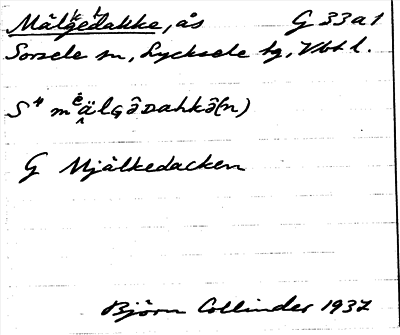 Mälgedakke, ås G 33 a 1
Sorsele sn, Lycksele tg, Vbtl.
S⁴ mᵉälGəDahkə(n)
G Mjälkedacken
Björn Collinder 1937